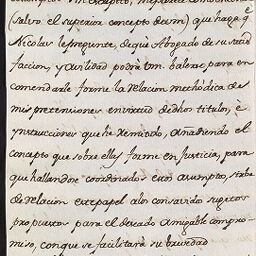 (salvo el superior concepto de vm) que haga q̃
Nicolas le pregunte, de que Abogado de su satis
faccion, y avilidad podrà vm. balerse para en
comendarle forme la relacion methodica de
mis pretensiones en virtud de dhos titulos, è
Instrucciones que he remitido, añadiendo el
concepto que sobre ellas forme en Justicia, para
que hallandose coordinados estos asumptos,
de relacion este papel a los consavido sugetos
propuestos para el deseado amigable compro-
miso, con que se facilitarà su brevedad